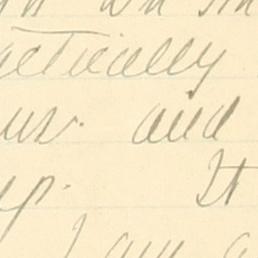 actically
us. and
p. It
I am a